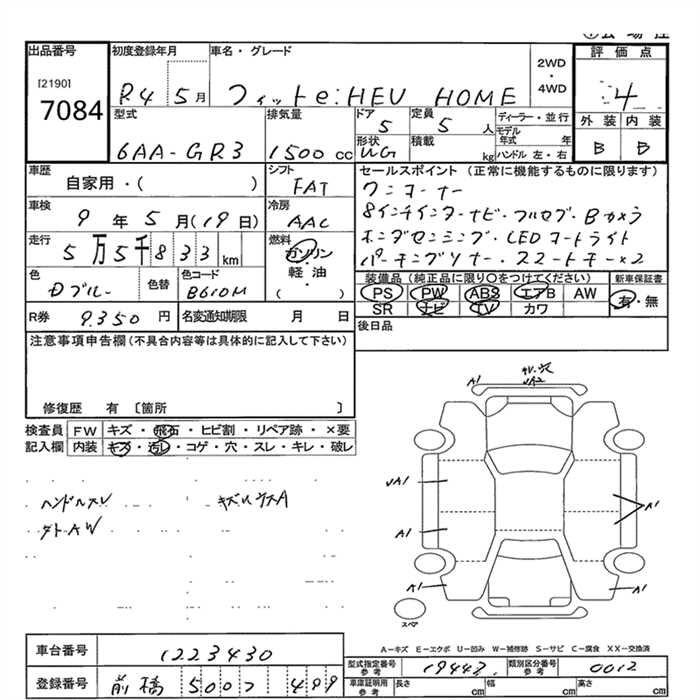 出品番号
[2190]
7084
初度登録年月
R4 5月
車名・グレード
フィットe:HEV HOME
2WD
・
4WD
評価点
4
外装 内装
B B
型式
6AA-GR3
排気量
1500 cc
ドア
5
定員
5 人
形状
WG
積載
kg
ディーラー・並行
モデル年式 年
ハンドル 左・右
車歴
自家用・( )
シフト
FAT
車検
9年5月(19日)
冷房
AAC
走行
5万5千833 km
燃料
ガソリン
軽・油
( ・ )
色
Dブルー
色替
色コード
B610M
R券
9.350円
名変通知期限 月 日
セールスポイント (正常に機能するものに限ります)
ワンオーナー
8インチインターナビ・フルセグ・Bカメラ
ホンダセンシング・LEDヘッドライト
パーキングソナー・スマートキー×2
装備品 (純正品に限り○をつけてください)
PS PW ABS エアB AW
SR ナビ TV カワ
新車保証書
有・無
後日品
注意事項申告欄(不具合内容等は具体的に記入して下さい)
修復歴 有 〔箇所 〕
検査員記入欄
FW キズ・飛石・ヒビ割・リペア跡・×要
内装 キズ・汚レ・コゲ・穴・スレ・キレ・破レ
ハンドルスレ
タトAW
A1
UA2
A1
UA1
A1
A1
A1
A1
スペア
A-キズ E-エクボ U-凹み W-補修跡 S-サビ C-腐食 XX-交換済
車台番号
1223430
登録番号
前橋 500 499
型式指定番号
参考
19443
類別区分番号
参考
0012
車庫証明用
参考
長さ cm
幅 cm
高さ cm